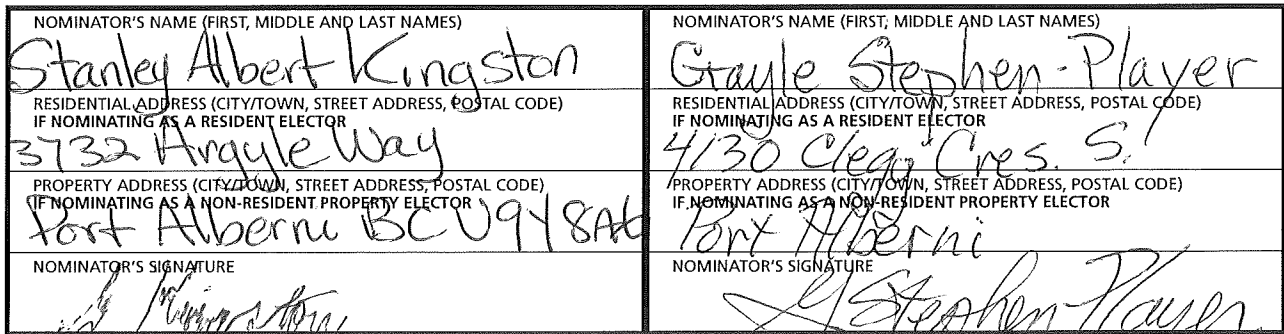 NOMINATOR'S NAME (FIRST, MIDDLE AND LAST NAMES)
Stanley Albert Kingston
RESIDENTIAL ADDRESS (CITY/TOWN, STREET ADDRESS, POSTAL CODE)
IF NOMINATING AS A RESIDENT ELECTOR
3732 Argyle Way
PROPERTY ADDRESS (CITY/TOWN, STREET ADDRESS, POSTAL CODE)
IF NOMINATING AS A NON-RESIDENT PROPERTY ELECTOR
Port Alberni BC V9Y 8A6
NOMINATOR'S SIGNATURE
S Kingston
NOMINATOR'S NAME (FIRST, MIDDLE AND LAST NAMES)
Gayle Stephen-Player
RESIDENTIAL ADDRESS (CITY/TOWN, STREET ADDRESS, POSTAL CODE)
IF NOMINATING AS A RESIDENT ELECTOR
4130 Clegg Cres. S.
PROPERTY ADDRESS (CITY/TOWN, STREET ADDRESS, POSTAL CODE)
IF NOMINATING AS A NON-RESIDENT PROPERTY ELECTOR
Port Alberni
NOMINATOR'S SIGNATURE
G Stephen-Player